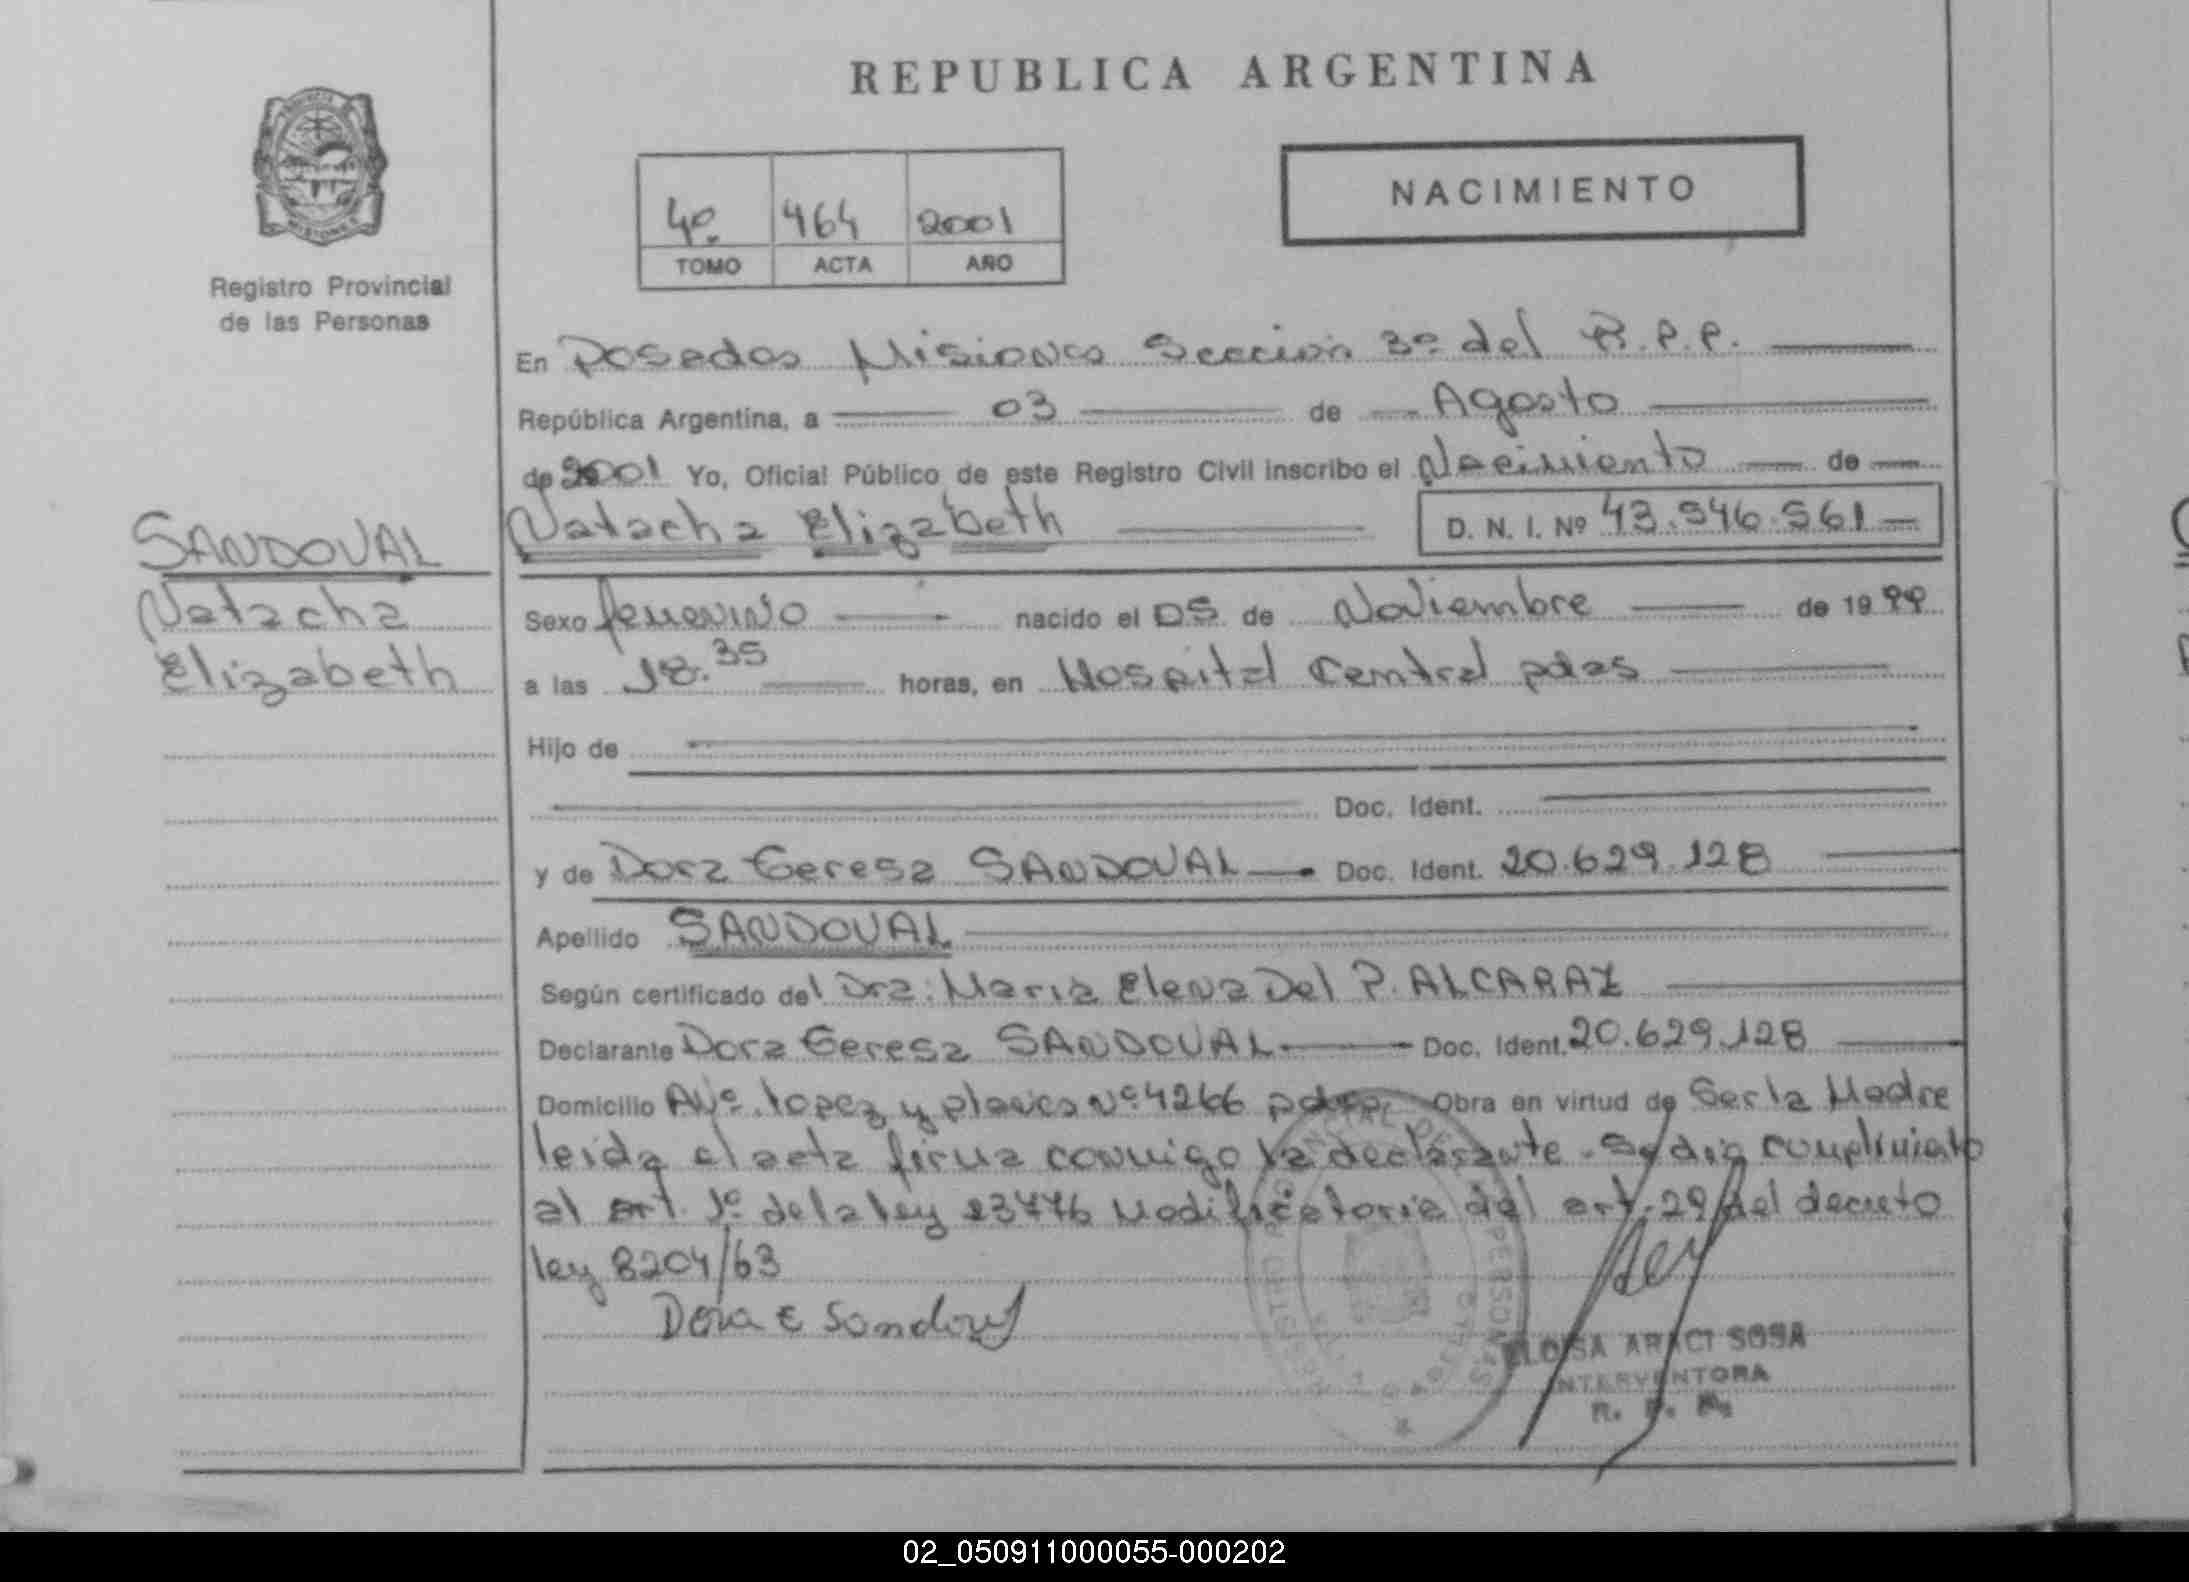 REPUBLICA ARGENTINA
4º. 464 2001
TOMO ACTA AÑO
NACIMIENTO
Registro Provincial
de las Personas
En Posadas Misiones Sección 3º del R.P.P.
República Argentina, a 03 de Agosto
de 2001 Yo, Oficial Público de este Registro Civil inscribo el Nacimiento de
Natacha Elizabeth D. N. I. Nº 43.946.561
SANDOVAL
Natacha
Elizabeth
Sexo femenino nacido el 05 de Noviembre de 1999
a las 18.35 horas, en Hospital Central pdas
Hijo de
Doc. Ident.
y de Dora Teresa SANDOVAL Doc. Ident. 20.629.128
Apellido SANDOVAL
Según certificado del Dra: Maria Elena Del P. ALCARAZ
Declarante Dora Teresa SANDOVAL Doc. Ident. 20.629.128
Domicilio Avº. lopez y planes Nº 4266 pdas. Obra en virtud de Ser la Madre
leida el acta firma conmigo la declarante. Se dio cumplimiento
al art. 1º de la ley 23776 Modificatoria del art. 29 del decreto
ley 8204/63
Dora E Sandoval
ELOISA ARACI SOSA
INTERVENTORA
02_050911000055-000202